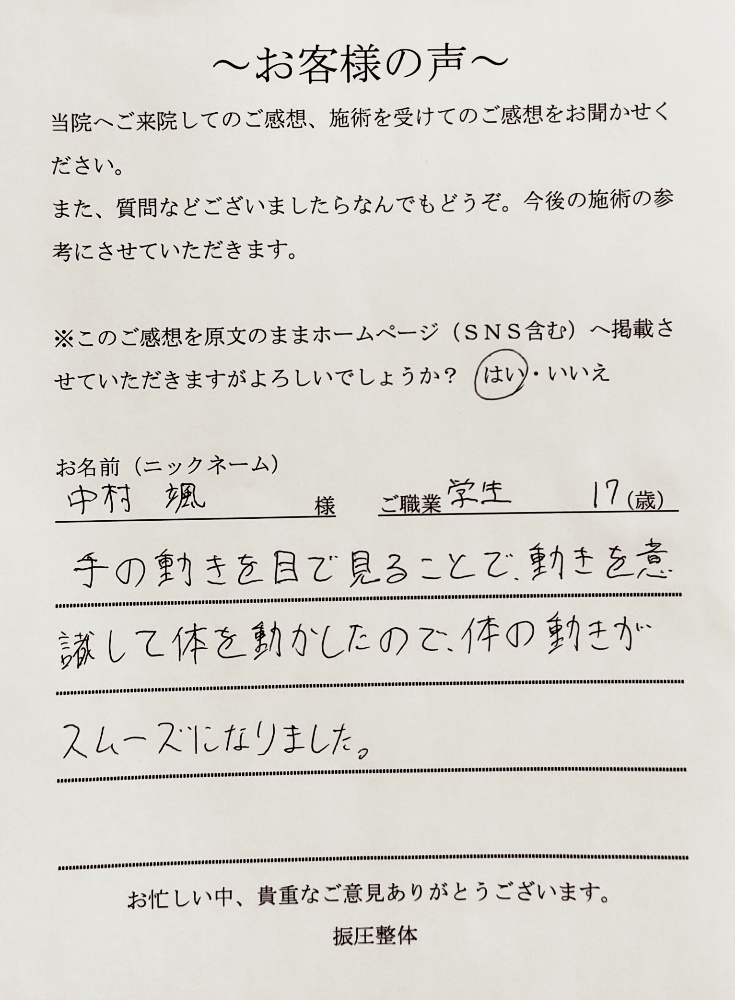 ～お客様の声～
当院へご来院してのご感想、施術を受けてのご感想をお聞かせく
ださい。
また、質問などございましたらなんでもどうぞ。今後の施術の参
考にさせていただきます。
※このご感想を原文のままホームページ（ＳＮＳ含む）へ掲載さ
せていただきますがよろしいでしょうか？ はい・いいえ
お名前（ニックネーム）
中村 颯 様 ご職業 学生 17(歳)
手の動きを目で見ることで、動きを意
識して体を動かしたので、体の動きが
スムーズになりました。
お忙しい中、貴重なご意見ありがとうございます。
振圧整体